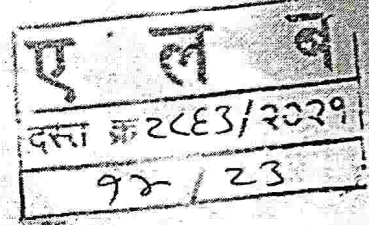 ए ल ब
दस्त क्र २८६३/२०२१
१२ / २३